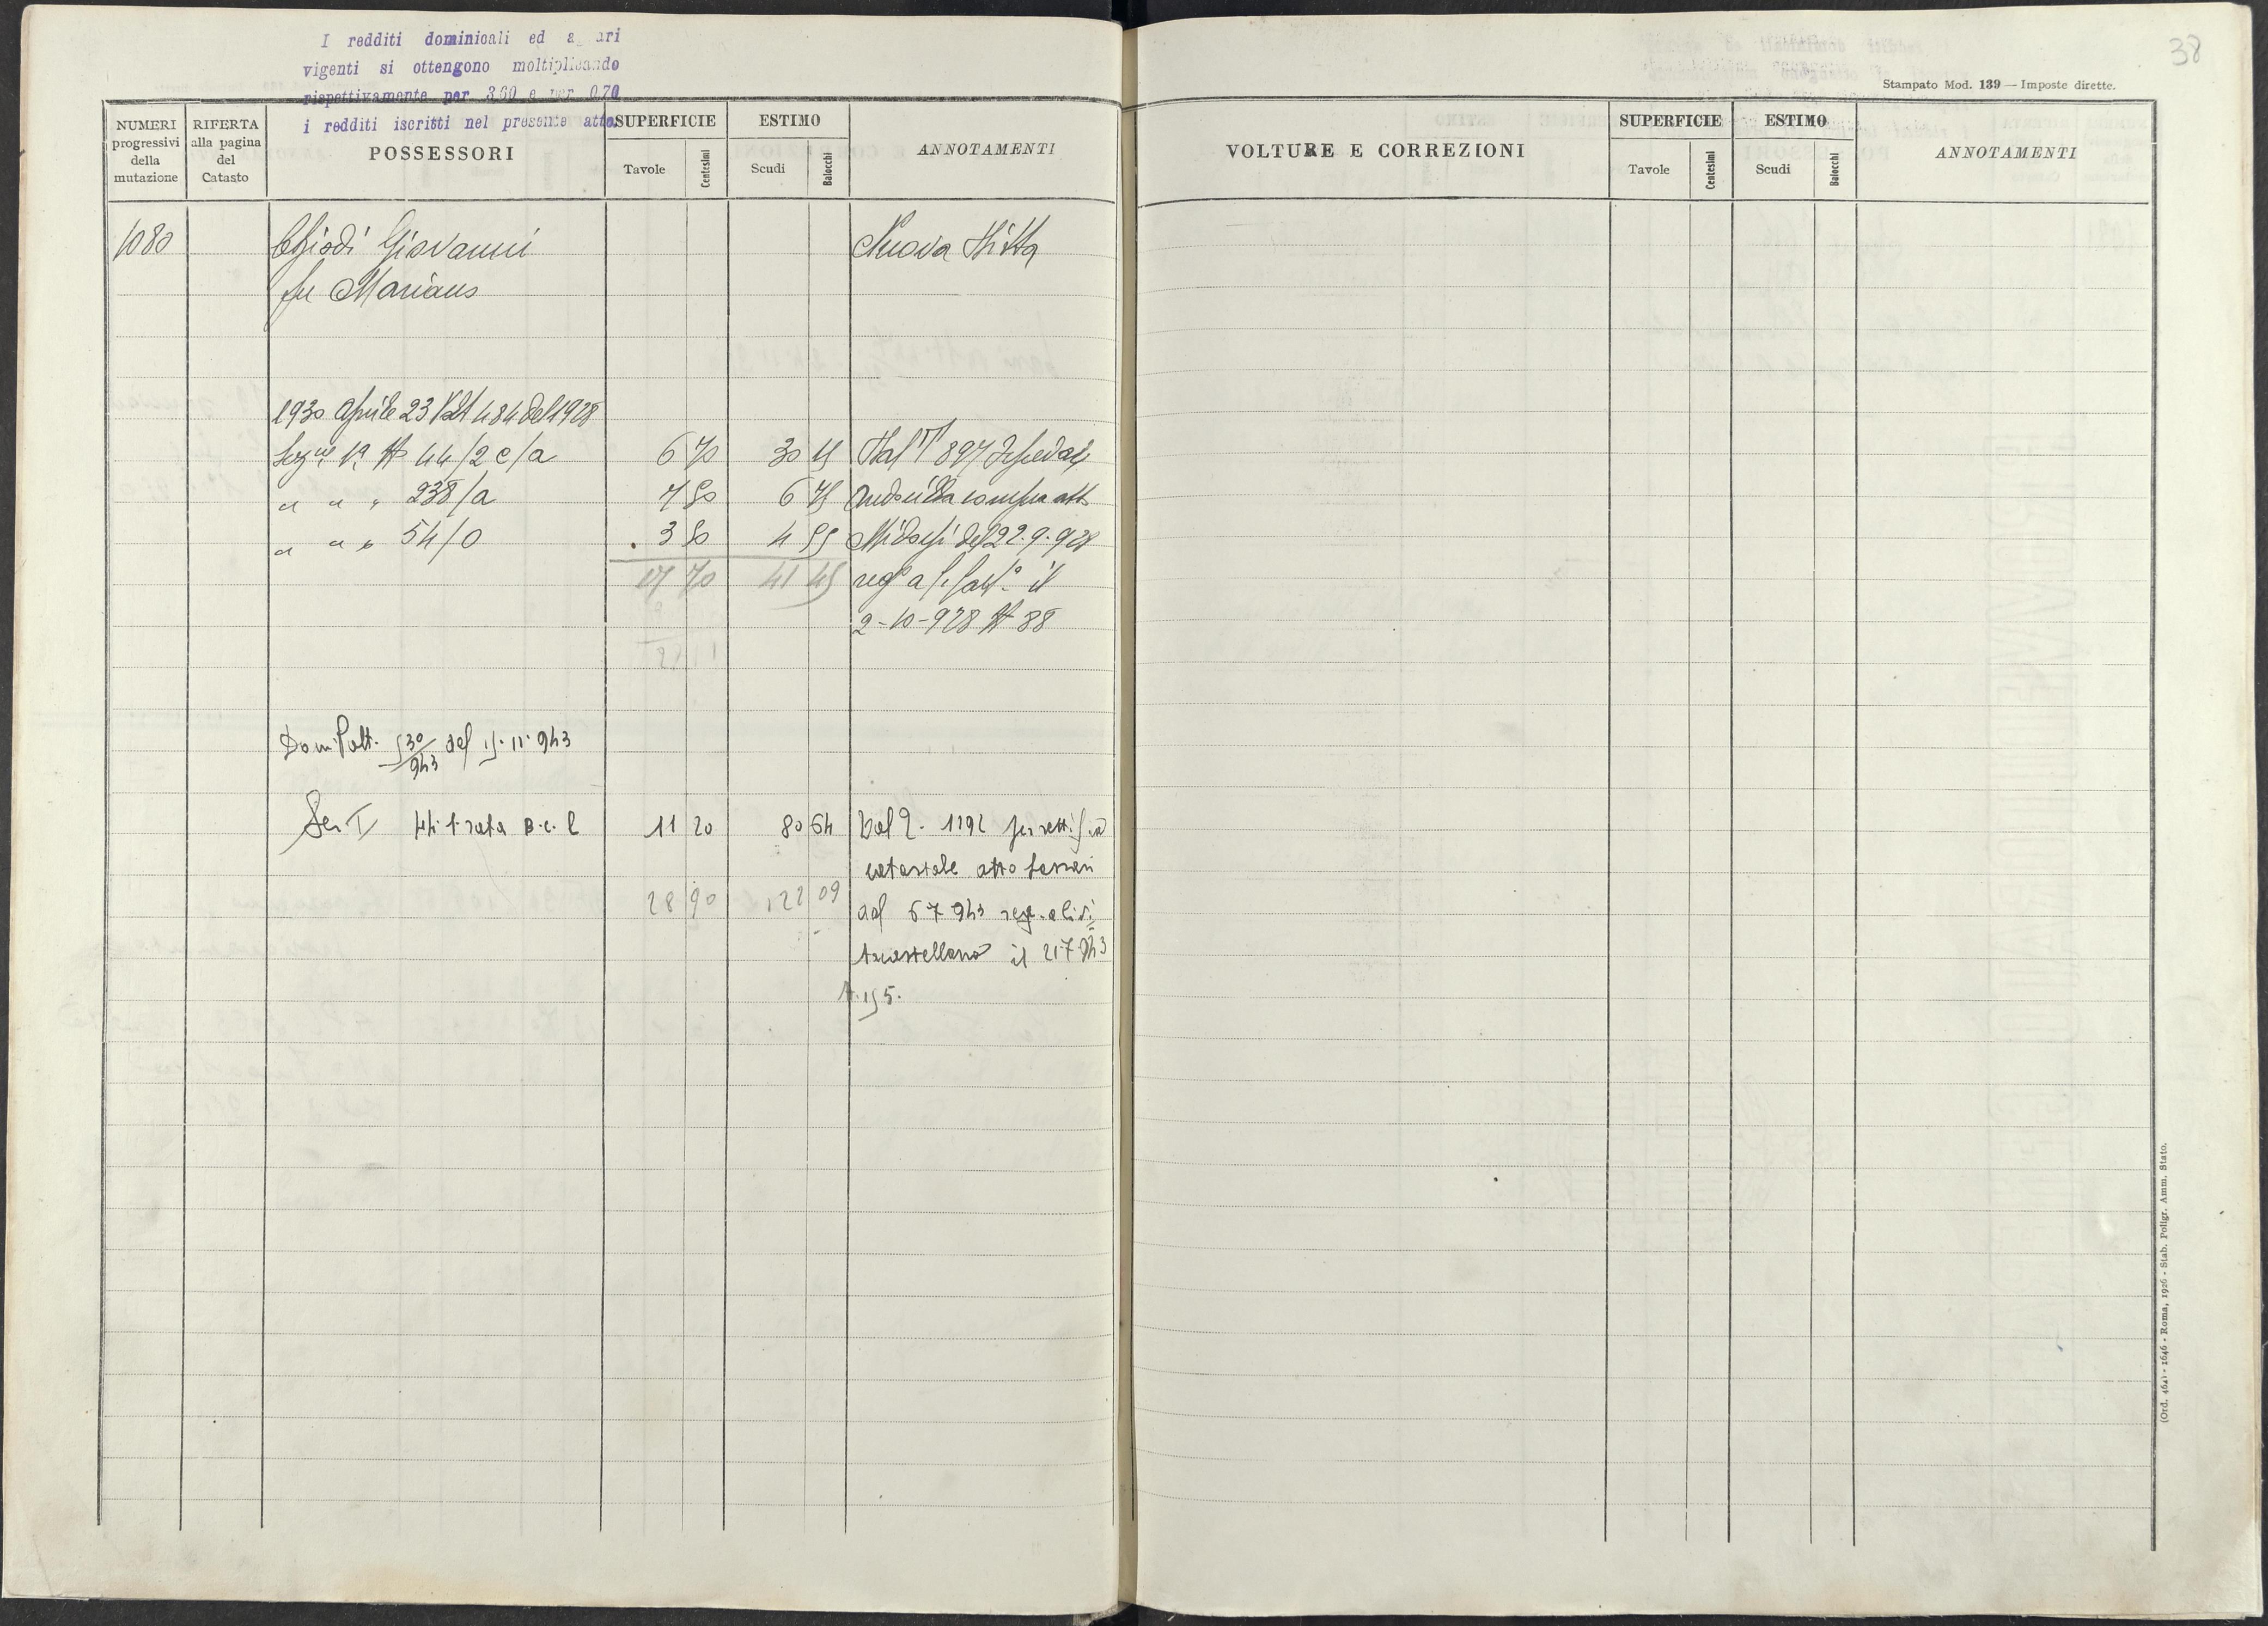 I redditi dominicali ed a ari
vigenti si ottengono moltiplicando
rispettivamente per 3,60 e per 0,70
i redditi iscritti nel presente atto.
38
Stampato Mod. 139 — Imposte dirette.
NUMERI progressivi della mutazione
RIFERTA alla pagina del Catasto
POSSESSORI
SUPERFICIE
Tavole
Centesimi
ESTIMO
Scudi
Baiocchi
ANNOTAMENTI
1080 Chiodi Giovanni Nuova Ditta
fu Mariano
1930 Aprile 23 Volt 484 del 1928
Sez.ne 1a N 44/2 c/a 6 70 30 15 Dal P 897
" " " 238/a 7 50 6 75 compra atto
" " " 54/0 3 50 4 55 del 22.9.928
17 70 41 45 reg° a il
2-10-928 N 88
Dom Volt. 530/943 del 15.11.943
Sez I 44 1 rata B.c.l 11 20 80 64 Dal P. 1192 per rettifica
catastale atto
28 90 122 09 del 6 7 943 reg.
il 21.7.943
N. 155.
VOLTURE E CORREZIONI
SUPERFICIE
Tavole
Centesimi
ESTIMO
Scudi
Baiocchi
ANNOTAMENTI
(Ord. 464) - 1646 - Roma, 1926 - Stab. Poligr. Amm. Stato.